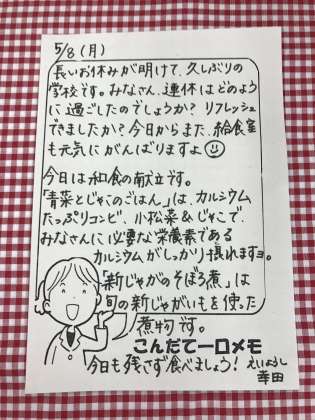 5/8（月）
長いお休みが明けて、久しぶりの
学校です。みなさん、連休はどのよう
に過ごしたのでしょうか？リフレッシュ
できましたか？今日からまた、給食室
も元気にがんばりますよ
今日は和食の献立です。
「青菜とじゃこのごはん」は、カルシウム
たっぷりコンビ、小松菜＆じゃこで、
みなさんに必要な栄養素である
カルシウムがしっかり摂れますョ。
「新じゃがのそぼろ煮」は
旬の新じゃがいもを使った
煮物です。
こんだて一口メモ
今日も残さず食べましょう！えいようし
幸田